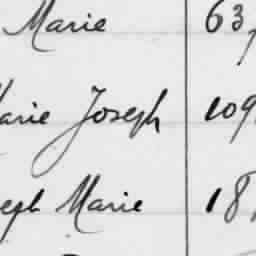 Marie 63,
Marie Joseph 109
eph Marie 18,